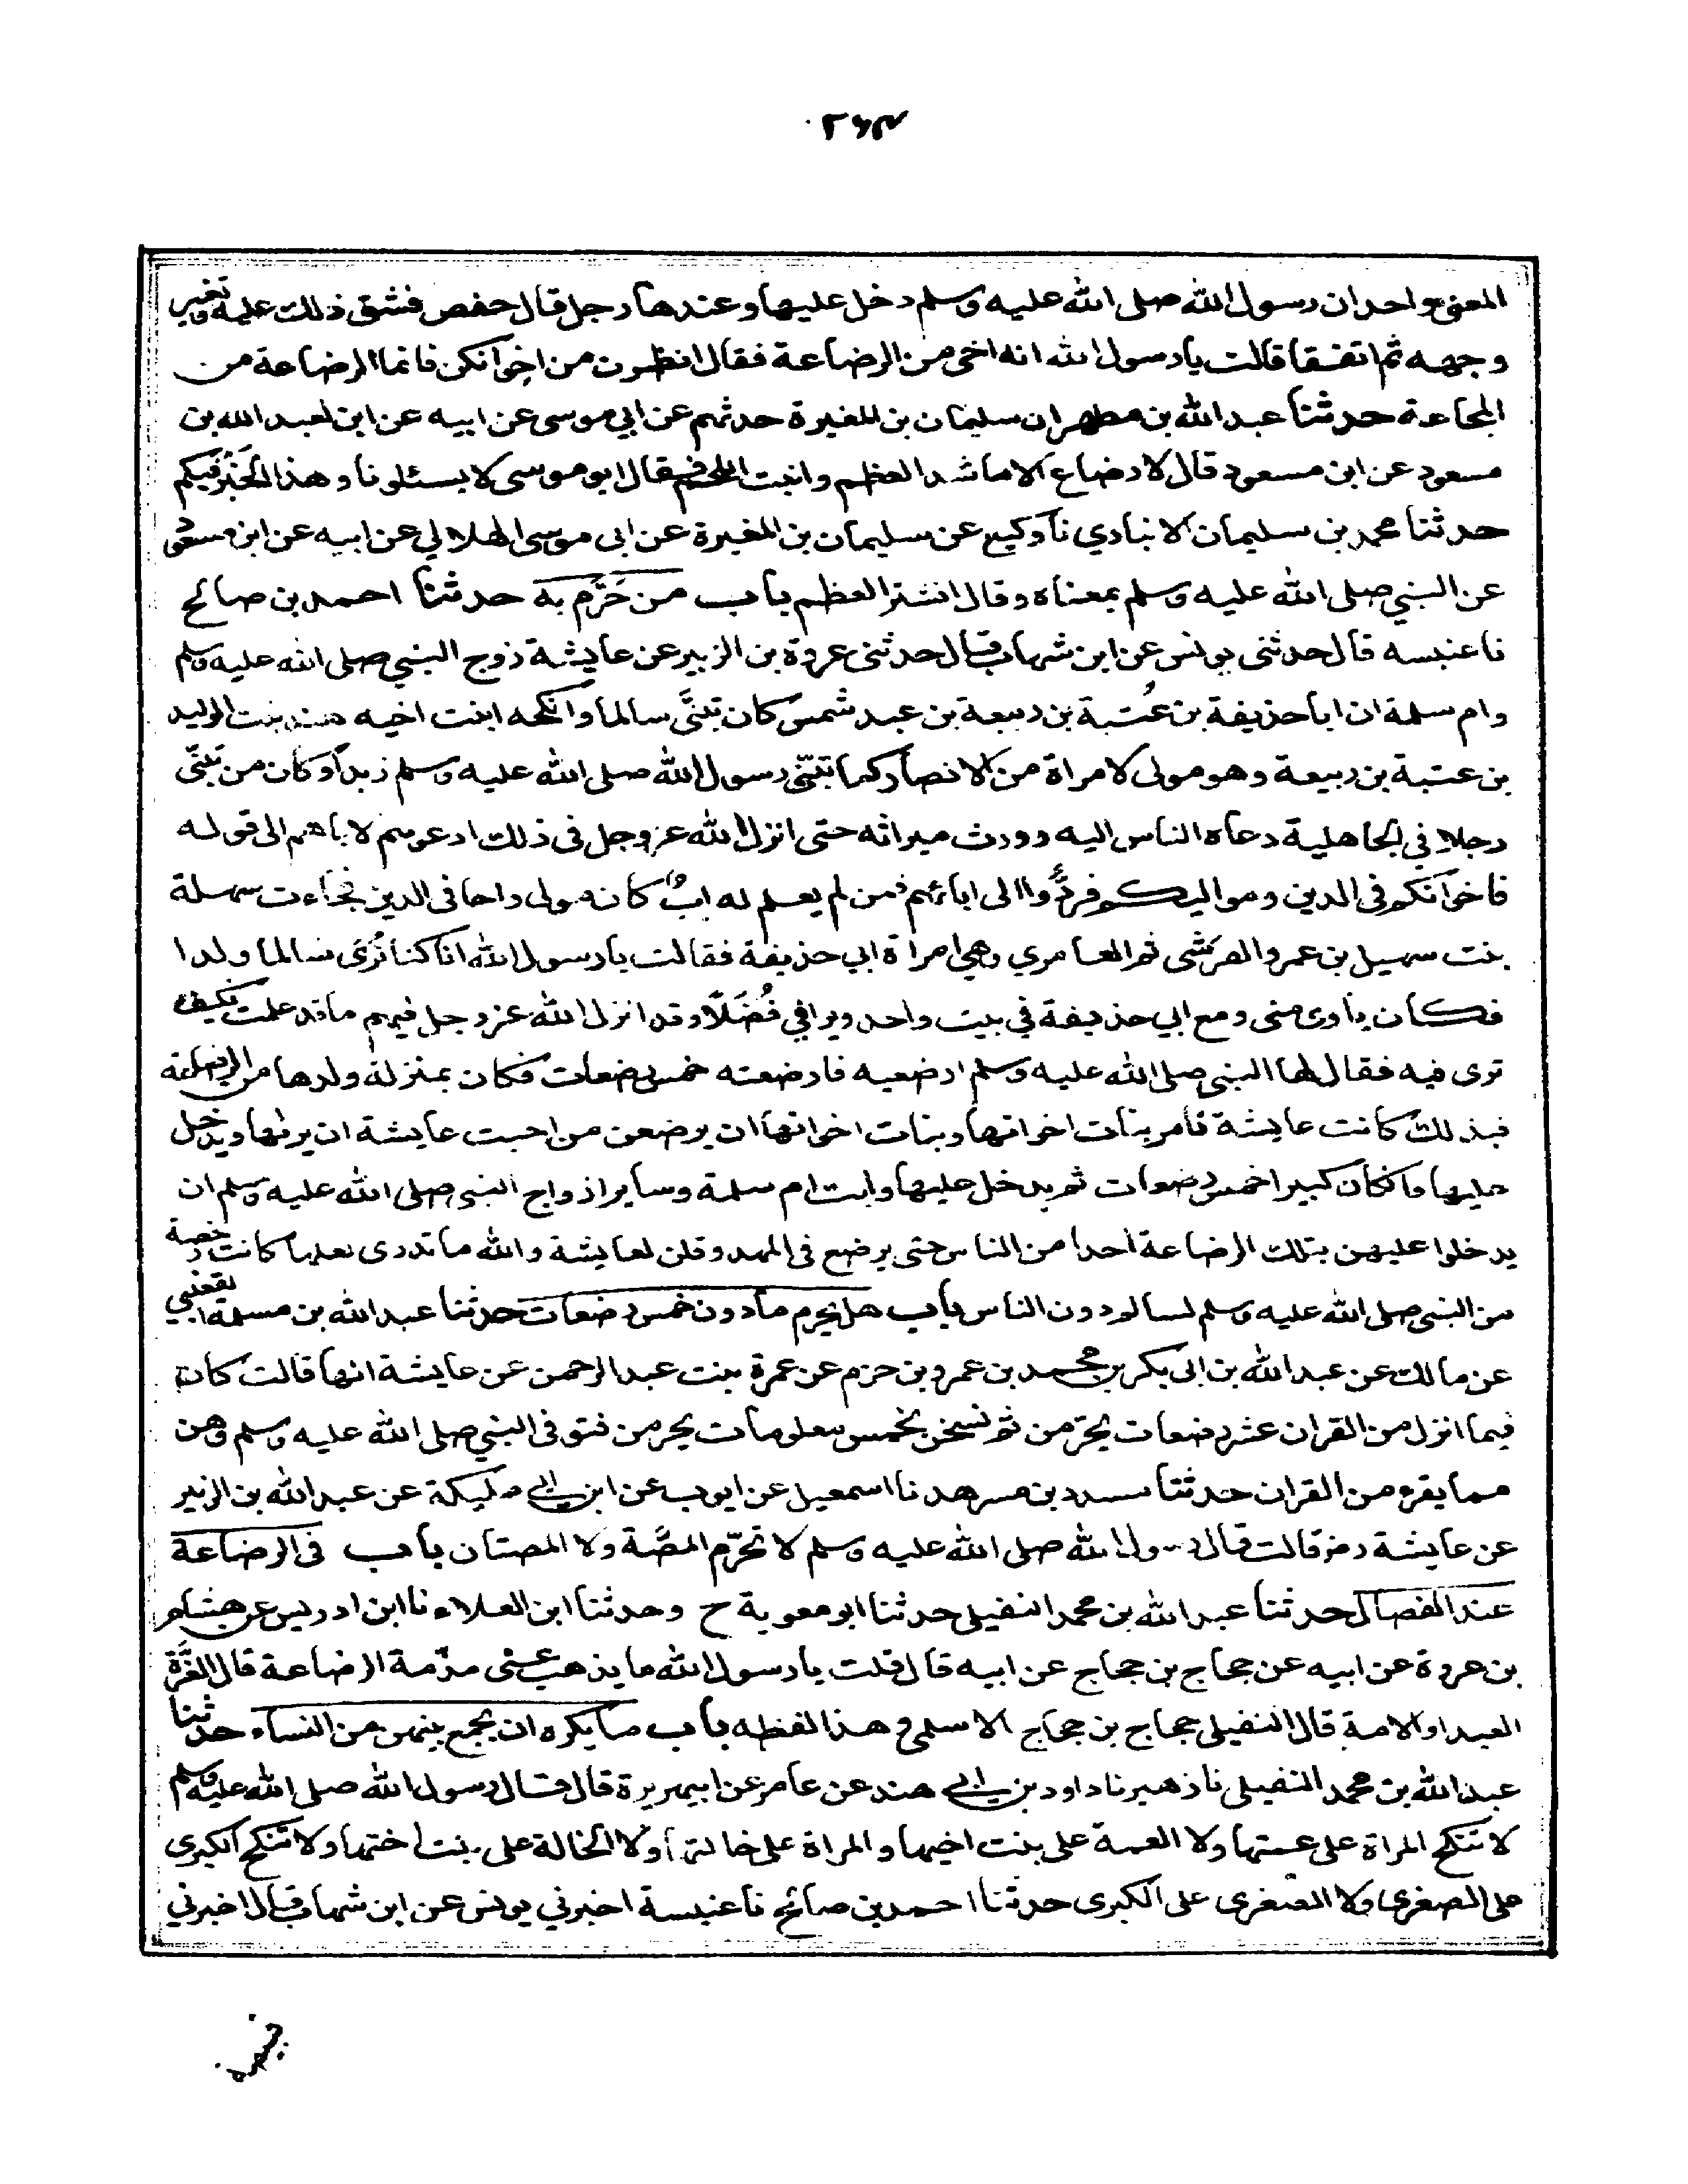 المعنى واحد ان رسول الله صلى الله عليه وسلم دخل عليها وعندها رجل قال حفص فشق ذلك عليه وتغير
وجهه ثم اتفقا قالت يا رسول الله انه اخي من الرضاعة فقال انظرن من اخوانكن فانما الرضاعة من
المجاعة حدثنا عبد الله بن مطهر ان سليمان بن المغيرة حدثهم عن ابي موسى عن ابيه عن ابن لعبد الله بن
مسعود عن ابن مسعود قال لا رضاع الا ما شد العظم وانبت اللحم فقال ابو موسى لا يسئلونا وهذا الحَبْرُ فيكم
حدثنا محمد بن سليمان الانباري نا وكيع عن سليمان بن المغيرة عن ابي موسى الهلالي عن ابيه عن ابن مسعود
عن النبي صلى الله عليه وسلم بمعناه وقال انشز العظم باب من حَرَّم به حدثنا احمد بن صالح
نا عنبسه قال حدثني يونس عن ابن شهاب قال حدثني عروة بن الزبير عن عايشة زوج النبي صلى الله عليه وسلم
وام سلمة ان ابا حذيفة بن عُتبة بن ربيعة بن عبد شمس كان تبنَّى سالما وانكحه ابنت اخيه هند بنت الوليد
بن عتبة بن ربيعة وهو مولى لامراة من الانصار كما تبنّى رسول الله صلى الله عليه وسلم زيدا وكان من تبنّى
رجلا في الجاهلية دعاه الناس اليه وورث ميراثه حتى انزل الله عزوجل في ذلك ادعوهم لابائهم الى قوله
فاخوانكم في الدين ومواليكم فردُّوا الى ابائهم فمن لم يعلم له ابٌ كان مولى واخا في الدين فجاءت سهلة
بنت سهيل بن عمرو القرشي ثم العامري وهي امراة ابي حذيفة فقالت يا رسول الله انا كنا نُرى سالما ولدا
فكان ياوي معي ومع ابي حذيفة في بيت واحد ويراني فُضَلًا وقد انزل الله عز وجل فيهم ما قد علمت فكيف
ترى فيه فقال لها النبي صلى الله عليه وسلم ارضعيه فارضعته خمس رضعات فكان بمنزلة ولدها من الرضاعة
فبذلك كانت عايشة تأمر بنات اخواتها وبنات اخوانها ان يرضعن من احبت عايشة ان يراها ويدخل
عليها وان كان كبيرا خمس رضعات ثم يدخل عليها وابت ام سلمة وساير ازواج النبي صلى الله عليه وسلم ان
يدخلوا عليهن بتلك الرضاعة احدا من الناس حتى يرضع في المهد وقلن لعايشة والله ما ندري لعلها كانت رخصة
من النبي صلى الله عليه وسلم لسالم دون الناس باب هل يحرم ما دون خمس رضعات حدثنا عبد الله بن مسلمة القعنبي
عن مالك عن عبد الله بن ابي بكر بن محمد بن عمرو بن حزم عن عمرة بنت عبد الرحمن عن عايشة انها قالت كان
فيما انزل من القران عشر رضعات يحرّمن ثم نسخن بخمس معلومات يحرمن فتوفى النبي صلى الله عليه وسلم وهن
مما يقرء من القران حدثنا مسدد بن مسرهد نا اسمعيل عن ايوب عن ابن ابي مليكة عن عبد الله بن الزبير
عن عايشة رض قالت قال رسول الله صلى الله عليه وسلم لا تحرّم المصَّة ولا المصتان باب في الرضاعة
عند الفصال حدثنا عبد الله بن محمد النفيلي حدثنا ابو معوية ح وحدثنا ابن العلاء نا ابن ادريس عن هشام
بن عروة عن ابيه عن حجاج بن حجاج عن ابيه قال قلت يا رسول الله ما يذهب عني مذّمة الرضاعة قال الغُرَّة
العبد او الامة قال النفيلي حجاج بن حجاج الاسلمي وهذا لفظه باب ما يكره ان يجمع بينهن من النساء حدثنا
عبد الله بن محمد النفيلي نا زهير نا داود بن ابي هند عن عامر عن ابيهريرة قال قال رسول الله صلى الله عليه وسلم
لا تنكح المراة على عمتها ولا العمة على بنت اخيها و المراة على خالتها ولا الخالة على بنت اختها ولا تنكح الكبرى
على الصغرى ولا الصغرى على الكبرى حدثنا احمد بن صالح نا عنبسة اخبرني يونس عن ابن شهاب قال اخبرني